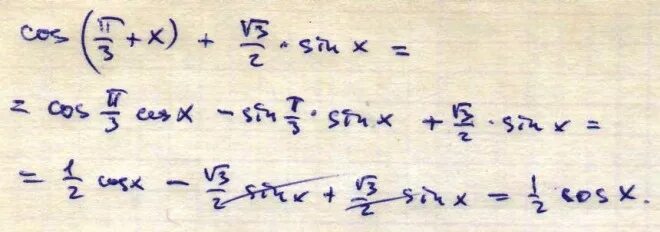 cos(π/3 + x) + √3/2 · sin x =
= cos π/3 cos x − sin π/3 · sin x + √3/2 · sin x =
= 1/2 cos x − √3/2 sin x + √3/2 sin x = 1/2 cos x.